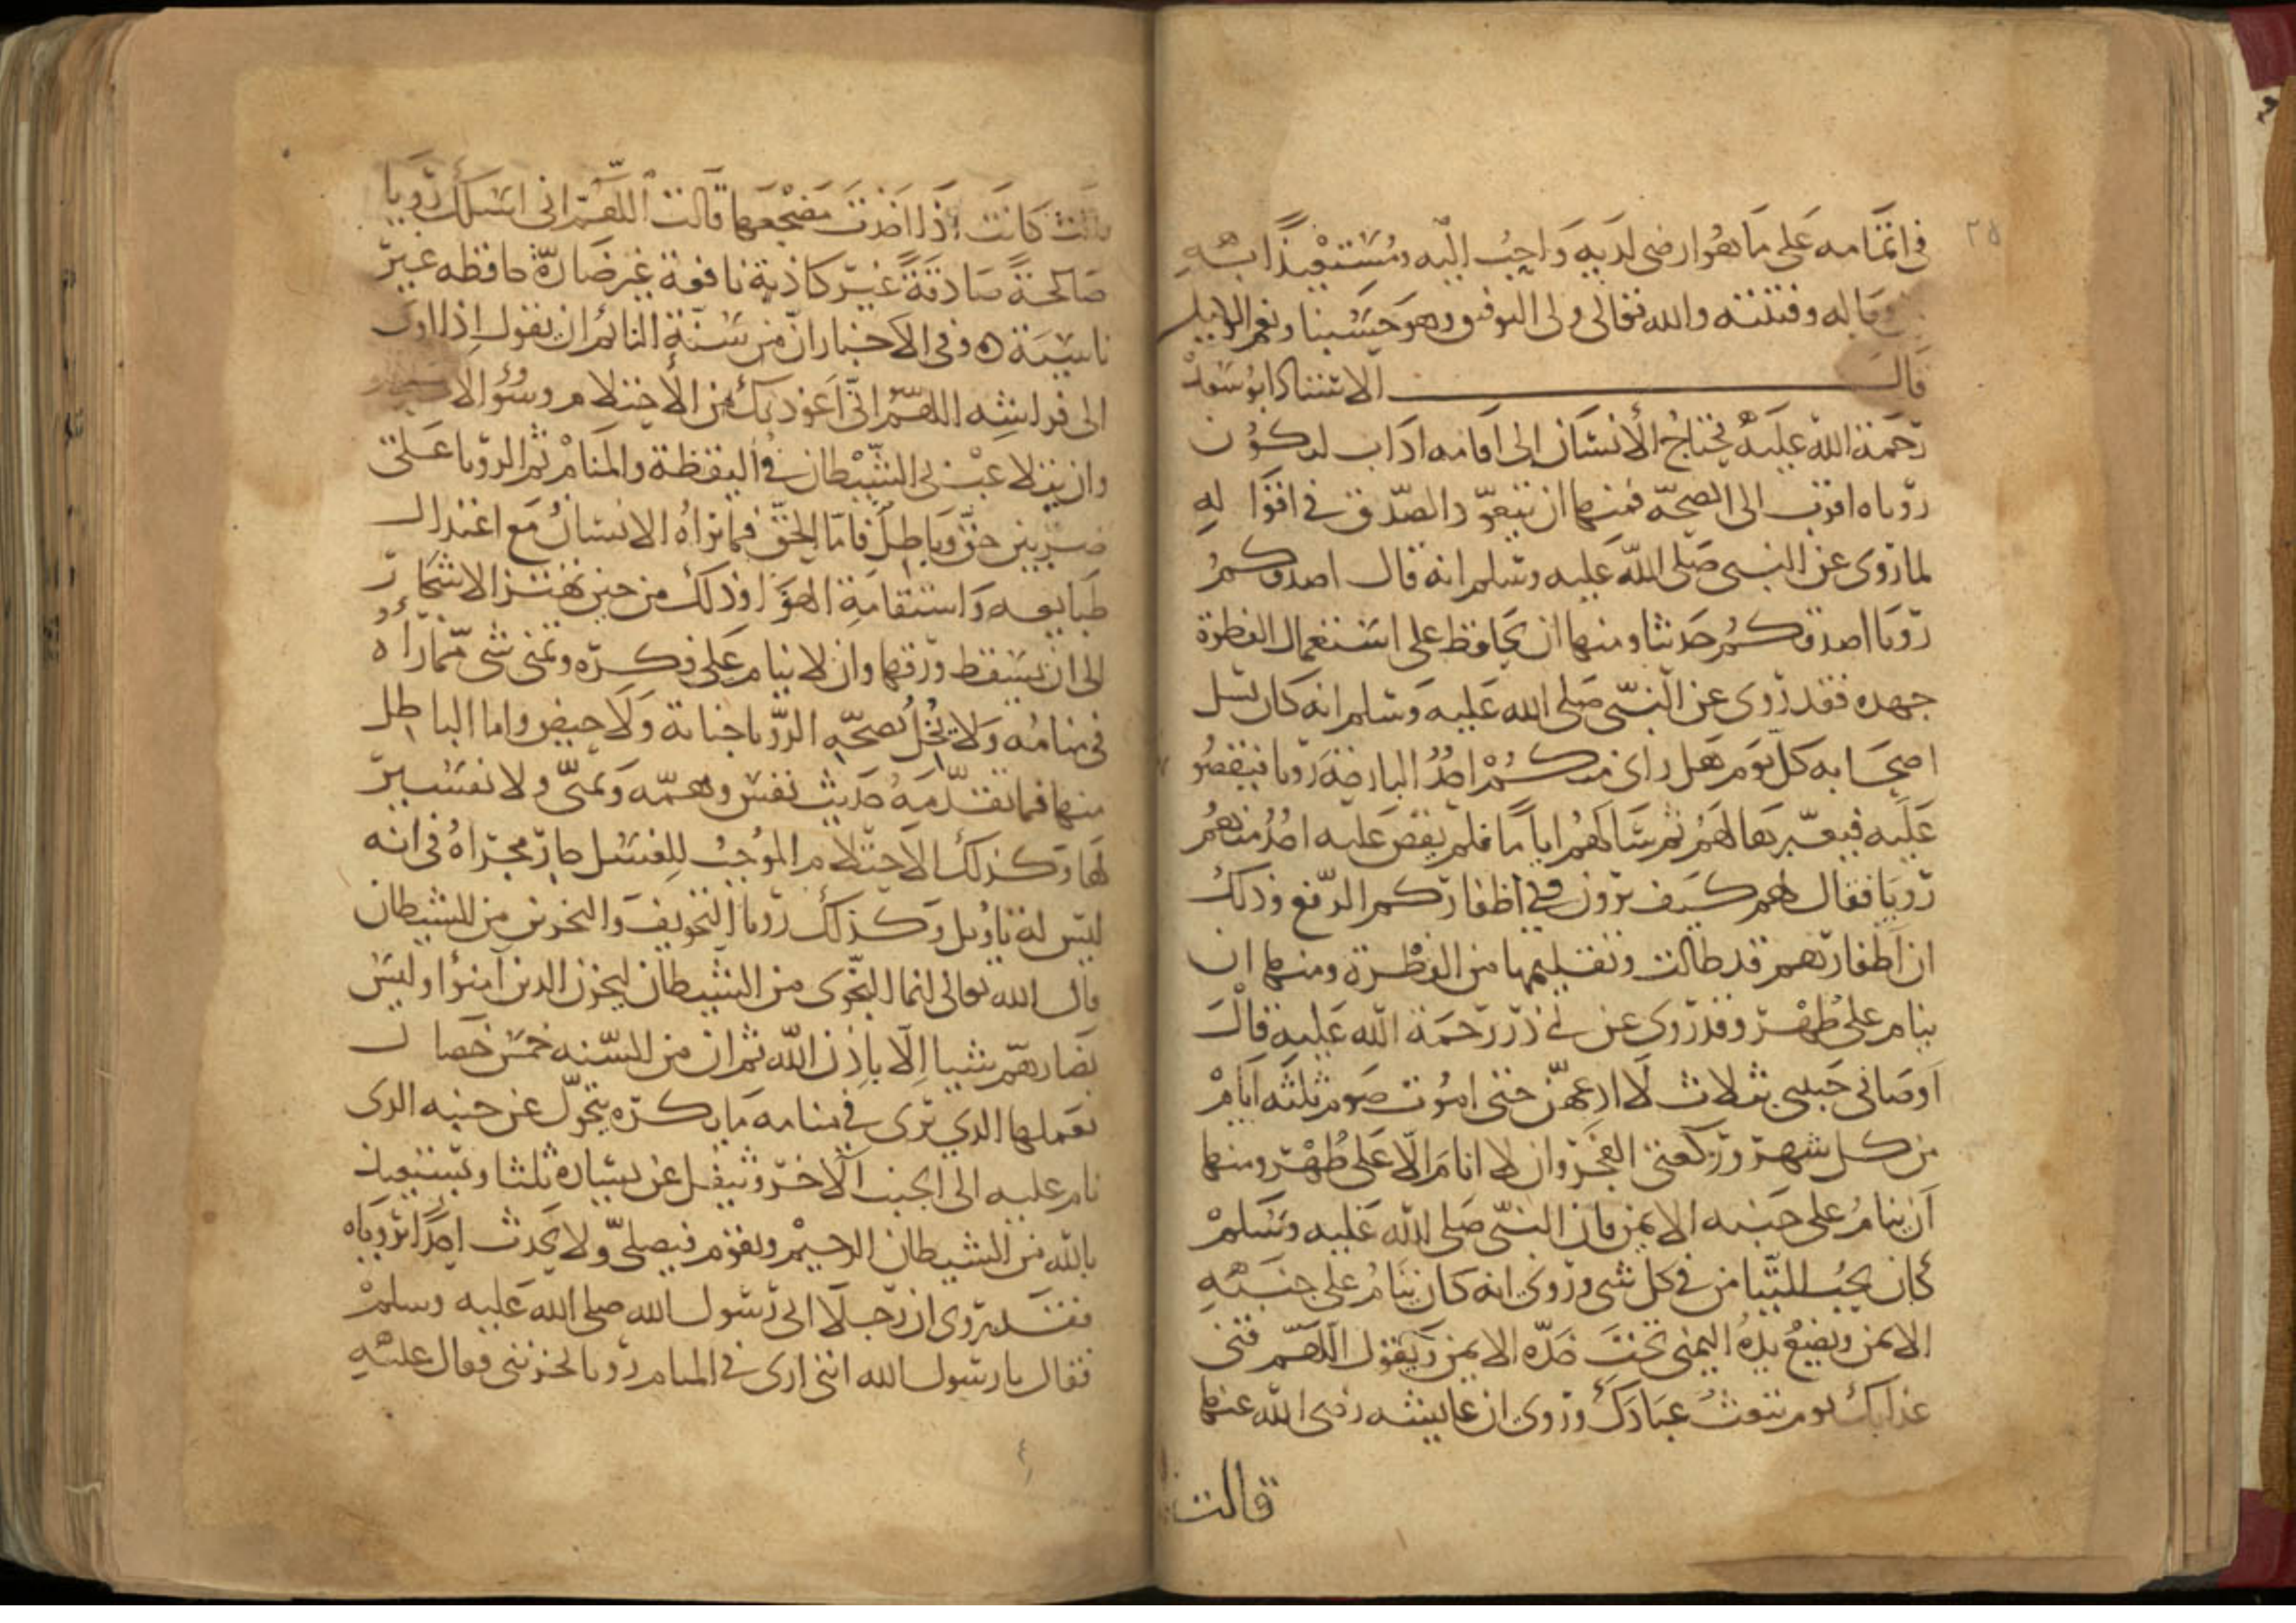 ٢٥
في اتمامه على ما هو ارضى لديه واحب اليه ومستعيذا به
وباله وفتنته والله تعالى ولي التوفيق وهو حسبنا ونعم الوكيل
قال الاستاذ ابو سعد
رحمة الله عليه يحتاج الانسان الى اقامه اداب لتكون
روياه اقرب الى الصحة فمنها ان يتعود الصدق في اقواله
لما روى عن النبي صلى الله عليه وسلم انه قال اصدقكم
رويا اصدقكم حديثا ومنها ان يحافظ على استعمال الفطرة
جهده فقد روى عن النبي صلى الله عليه وسلم انه كان يسل
اصحابه كل يوم هل راى منكم احد البارحة رويا فيقصو
عليه فيعبرها لهم ثم سالهم اياما فلم يقص عليه احد منهم
رويا فقال لهم كيف ترون وفي اظفاركم الرفغ وذلك
ان اظفارهم قد طالت وتقليمها من الفطرة ومنها ان
ينام على طهر وقد روى عن ابي ذر رحمة الله عليه قال
اوصاني حبيبي بثلاث لا ادعهن حتى اموت صوم ثلثه ايام
من كل شهر وركعتي الفجر وان لا انام الا على طهر ومنها
ان ينام على جنبه الايمن فان النبي صلى الله عليه وسلم
كان يحب التيامن في كل شي وروى انه كان ينام على جنبه
الايمن ويضع يده اليمنى تحت خده الايمن ويقول اللهم قني
عذابك يوم تبعث عبادك وروى ان عايشه رضى الله عنها
قالت
قالت كانت اذا اخذت مضجعها قالت اللهم انى اسلك رويا
صالحة صادقة غير كاذبة نافعة غير ضارة حافظه غير
ناسية ه وفي الاخبار ان من سنة النائم ان يقول اذا اوى
الى فراشه اللهم انى اعوذ بك من الاحتلام وسوء الا
وان يتلاعب بى الشيطان في اليقظة والمنام ثم الرويا على
ضربين حق وباطل فاما الحق فما يراه الانسان مع اعتدال
طبايعه واستقامة الهوا وذلك من حين تهتز الاشجار
الى ان يسقط ورقها وان لا ينام على فكره وتمنى شى مما راه
في منامه ولا يخل بصحة الرويا جنابة ولا حيض واما الباطل
منها فما تقدمه حديث نفس وهمه وتمنى ولا تفسير
لها وكذلك الاحتلام الموجب للغسل جار مجراه في انه
ليس له تاويل وكذلك رويا التخويف والتحزين من الشيطان
قال الله تعالى انما النجوى من الشيطان ليحزن الذين آمنوا وليس
بضارهم شيا الا باذن الله ثم ان من السنه خمس خصال
يعملها الذي يرى في منامه ما يكره يتحول عن جنبه الذى
نام عليه الى الجنب الاخر ويتفل عن يساره ثلثا ويستعيذ
بالله من الشيطان الرجيم ويقوم فيصلى ولا يحدث احدا بروياه
فقد روى ان رجلا اتى رسول الله صلى الله عليه وسلم
فقال يا رسول الله اننى ارى في المنام رويا تحزننى فقال عليه
٤